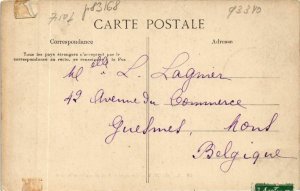 7.10f p83168 93380
CARTE POSTALE
Correspondance Adresse
Tous les pays étrangers n'acceptent pas la
correspondance au recto, se renseigner à la Poste
Mlle L. Lagnier
42 Avenue du Commerce
Quesmes, Mons
Belgique